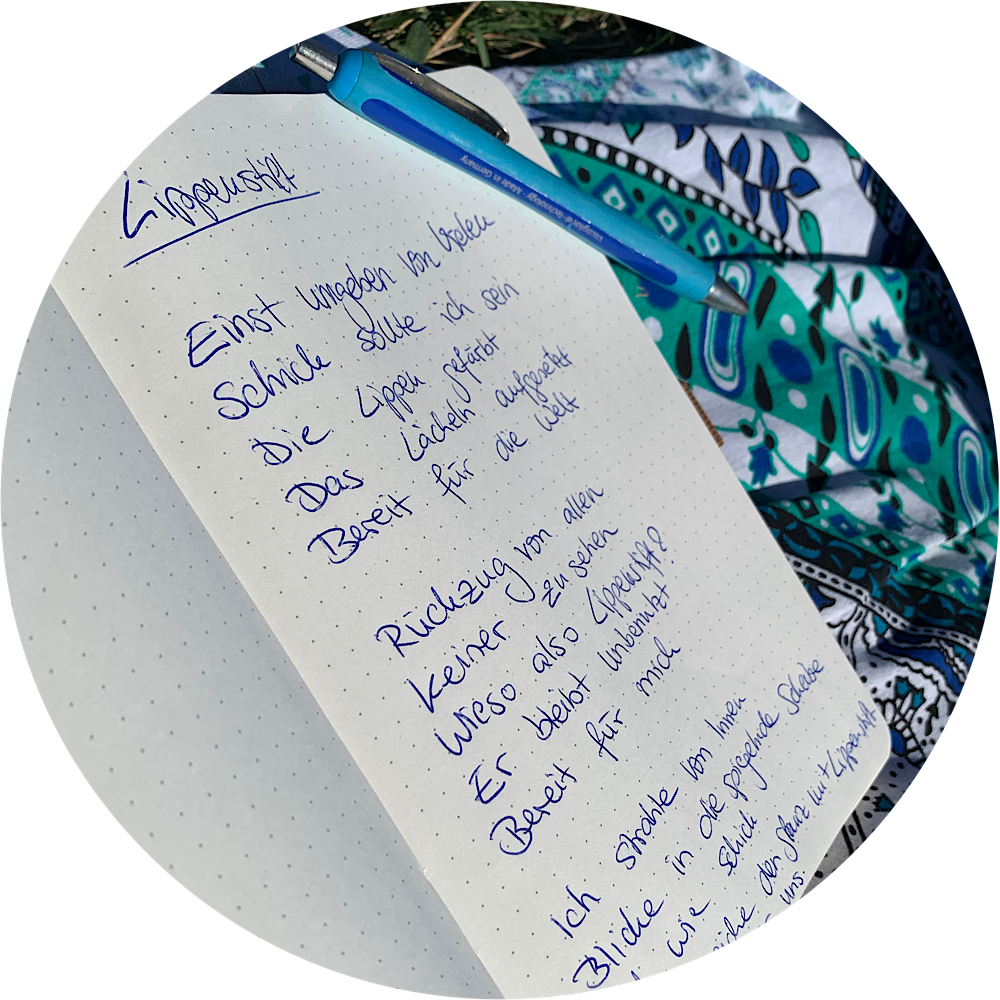 Lippenstift
Einst umgeben von Vielen
Schick sollte ich sein
Die Lippen gefärbt
Das Lächeln aufgesetzt
Bereit für die Welt
Rückzug von allen
Keiner zu sehen
Wieso also Lippenstift?
Er bleibt unbenutzt
Bereit für mich
Ich strahle von Innen
Blicke in die spiegelnde Scheibe
wie schick
den Glanz mit Lippenstift
uns.
Viscoglide®-Technology · Made in Germany